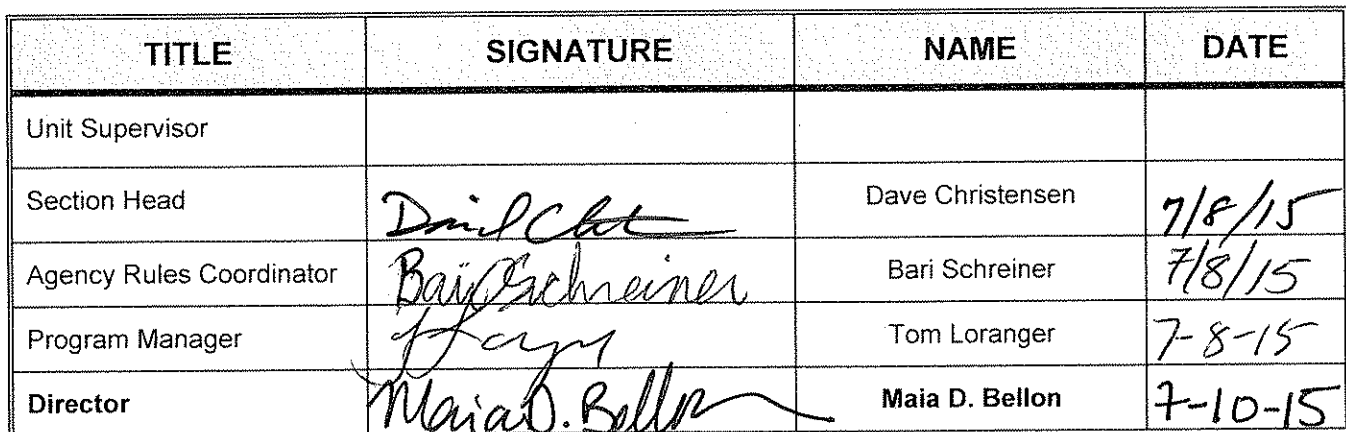 TITLE SIGNATURE NAME DATE
Unit Supervisor
Section Head Dave Christensen 7/8/15
Agency Rules Coordinator Bari Schreiner Bari Schreiner 7/8/15
Program Manager Tom Loranger 7-8-15
Director Maia D. Bellon Maia D. Bellon 7-10-15